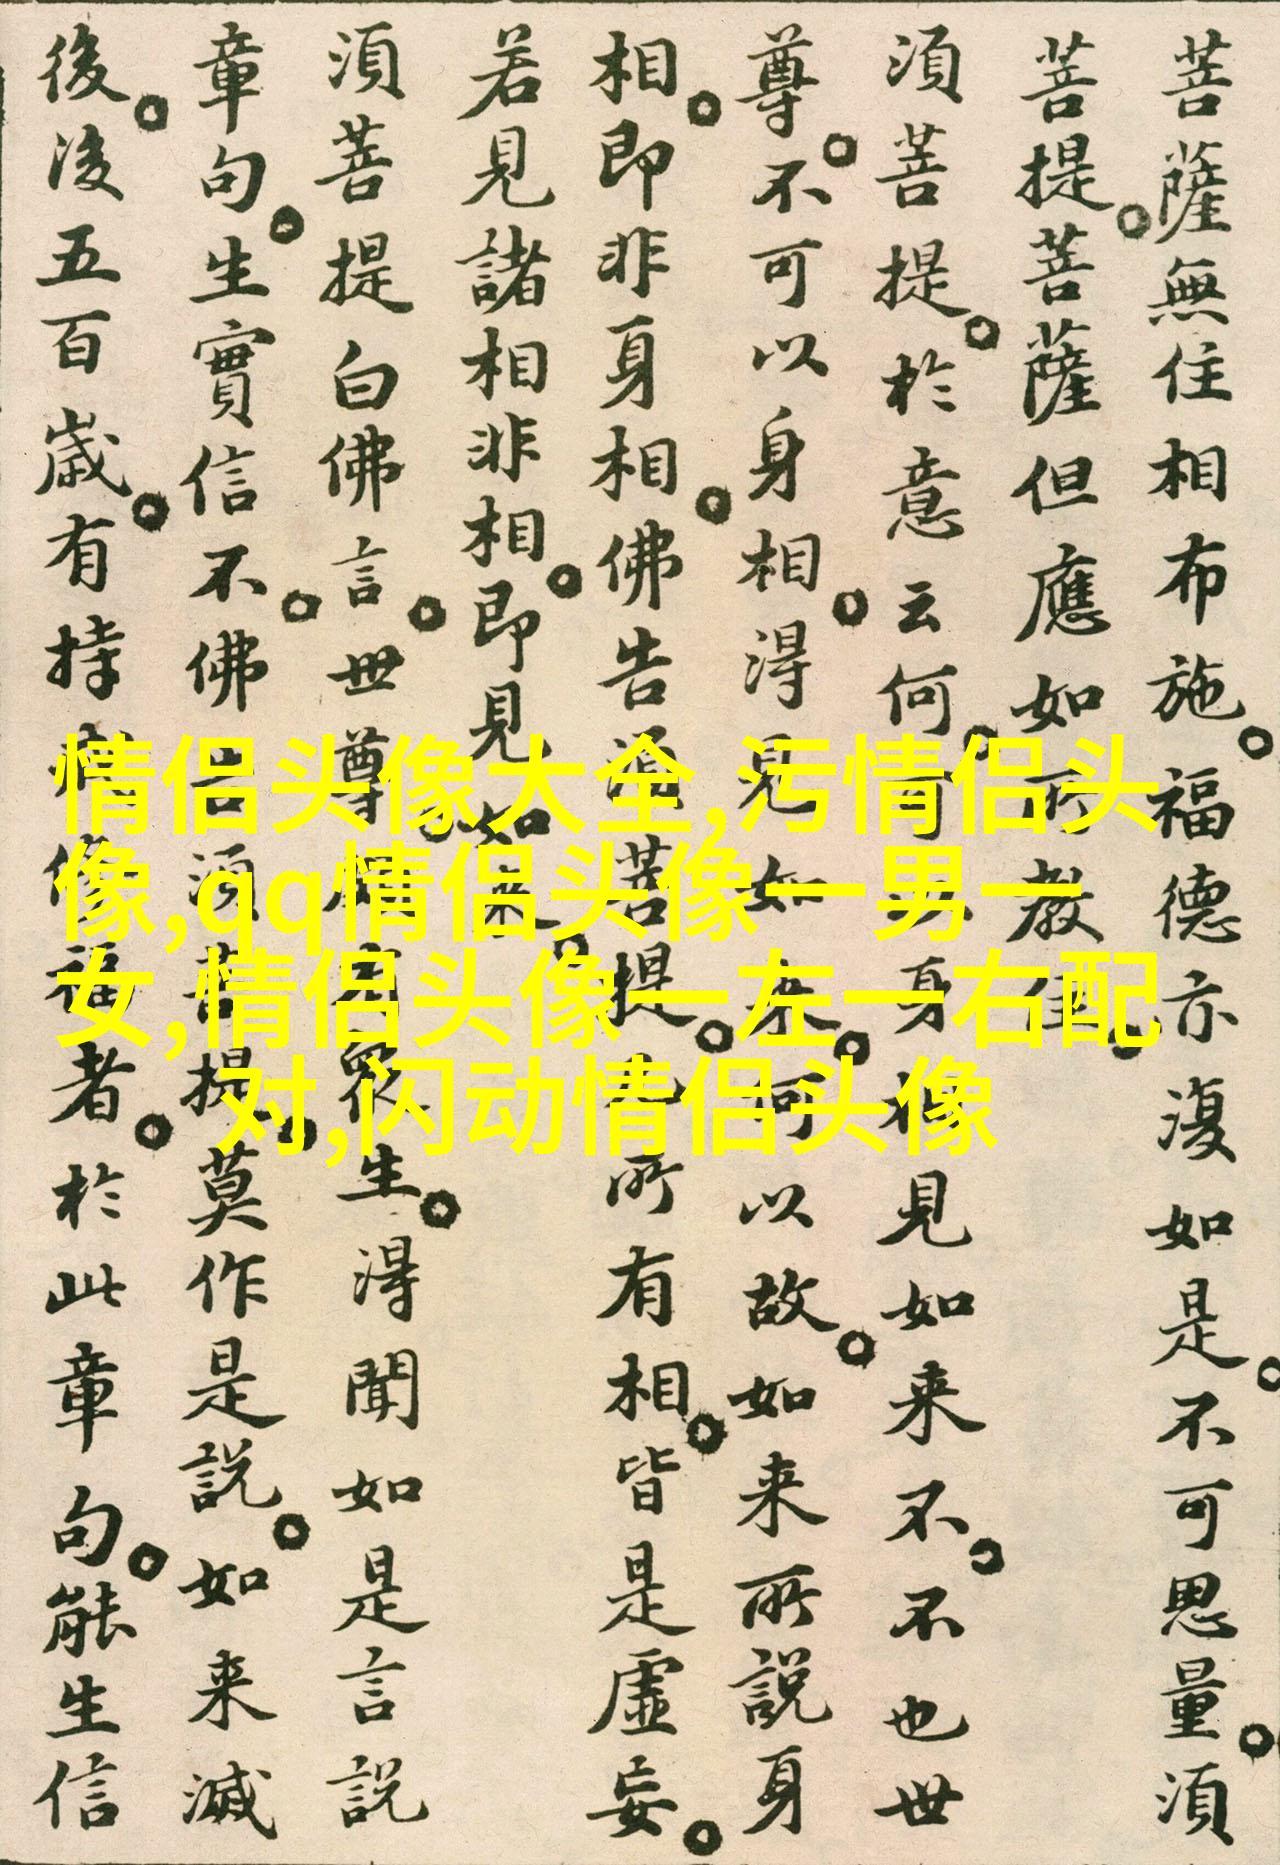 菩薩無住相布施。福德亦復如是。不可思量。須
菩提。菩薩但應如所教住。
須菩提。於意云何。可以身相見如来不。不也世
尊。不可以身相。得見如来。何以故。如来所說身
相。即非身相。佛告須菩提。凡所有相。皆是虛妄。
若見諸相非相。即見如来。
須菩提白佛言。世尊。頗有眾生。得聞如是言說
章句。生實信不。佛告須菩提。莫作是說。如来滅
後。後五百歲。有持戒修福者。於此章句。能生信
情侣头像大全,污情侣头
像,qq情侣头像一男一
女,情侣头像一左一右配
对,闪动情侣头像